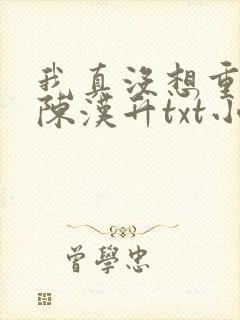 我真沒想重
陳漢升txt小
曾學忠